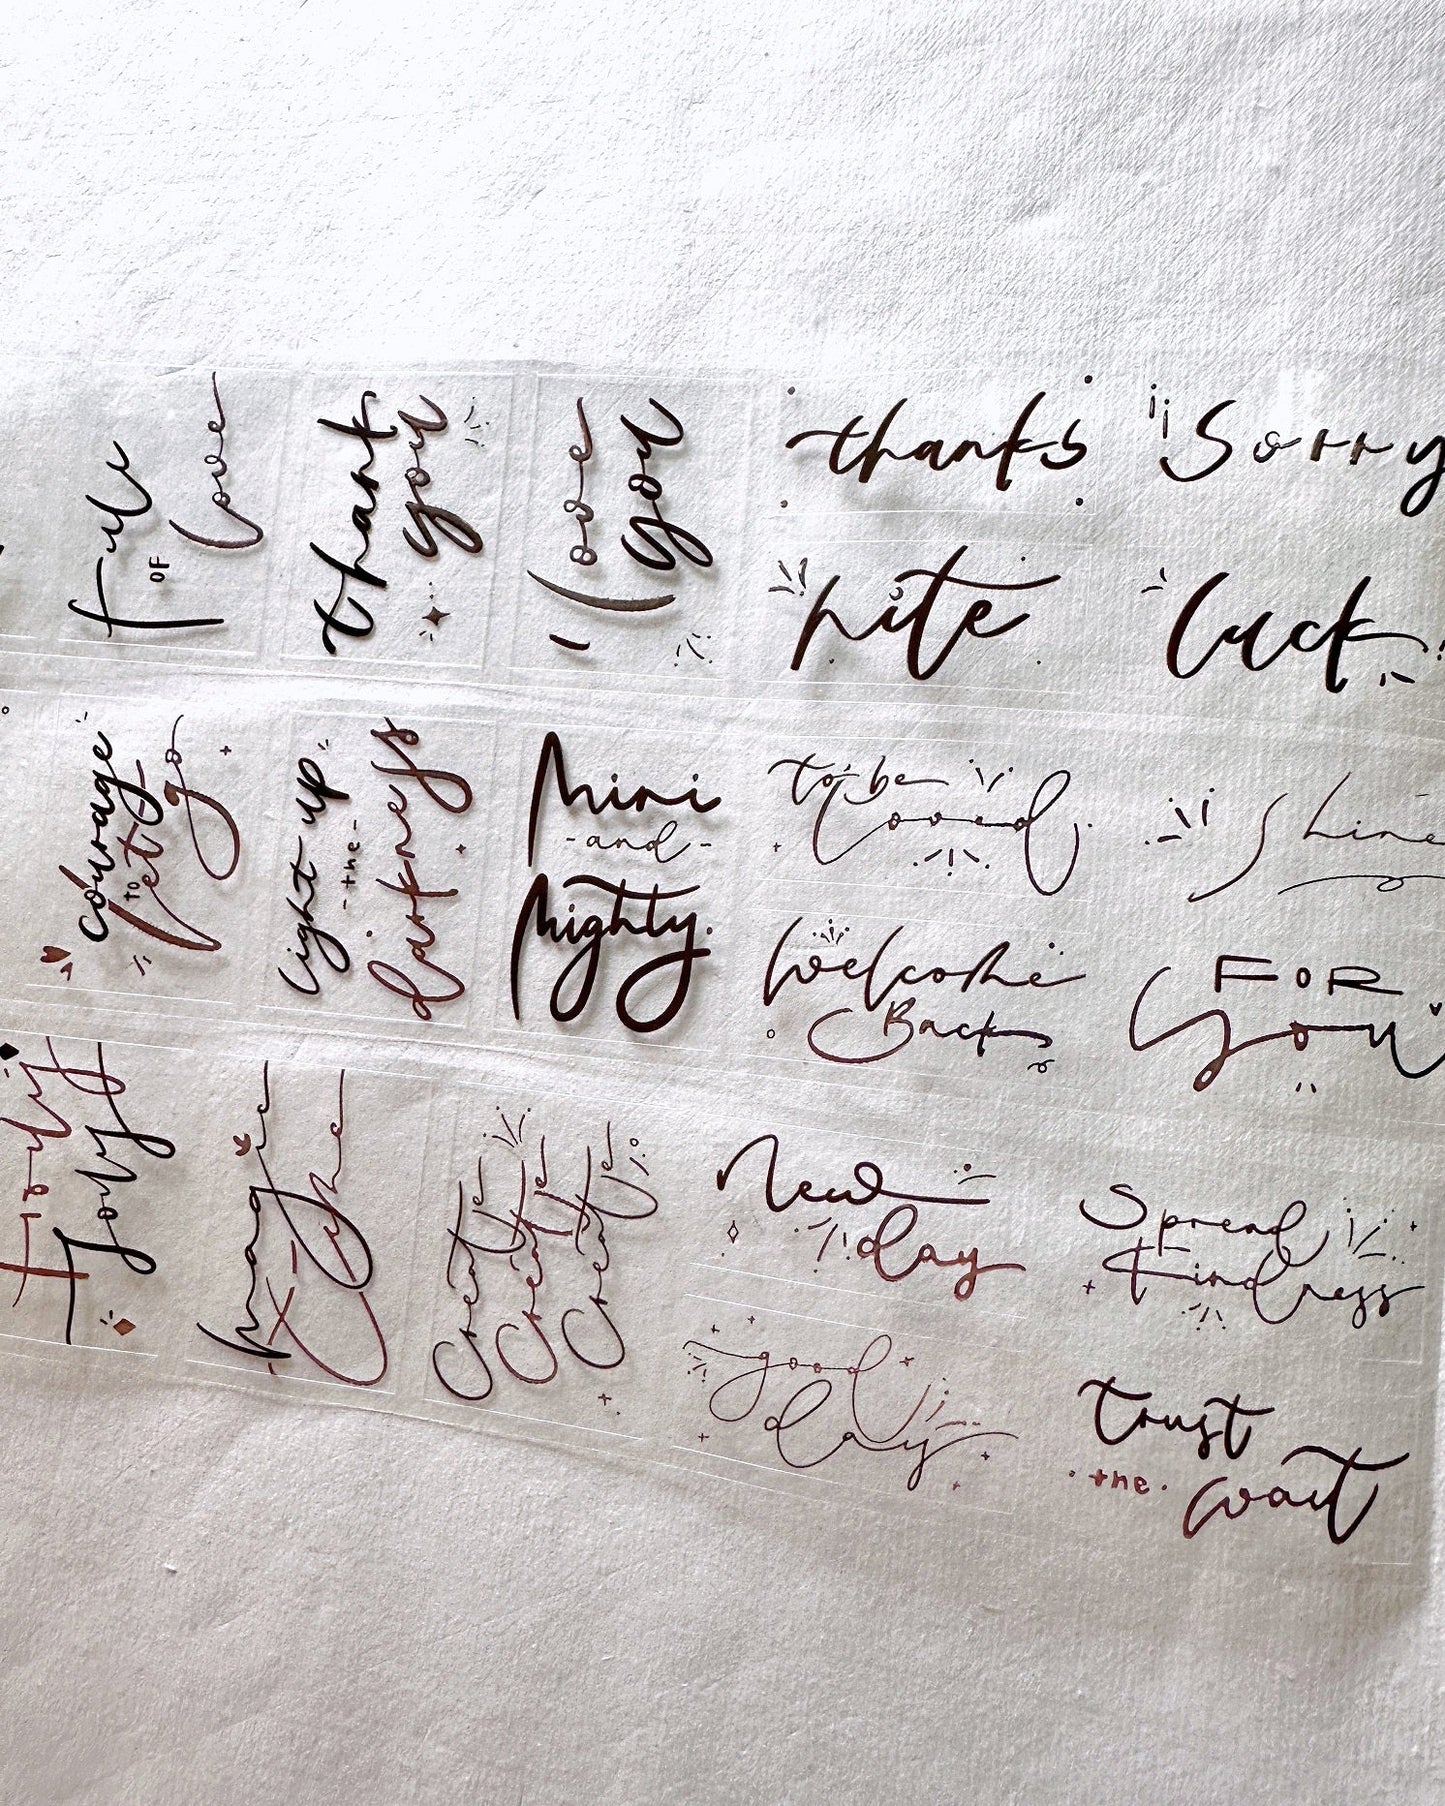 full
OF
love
thank
you
I love
you
thanks
Sorry
hite
luck
courage
to
let
go
light up
-the-
darkness
Mini
-and-
Mighty.
to be
loved
Shine
Welcome
Back
FOR
you
create
create
create
New
day
Spread
kindness
good
day
trust
the
wait